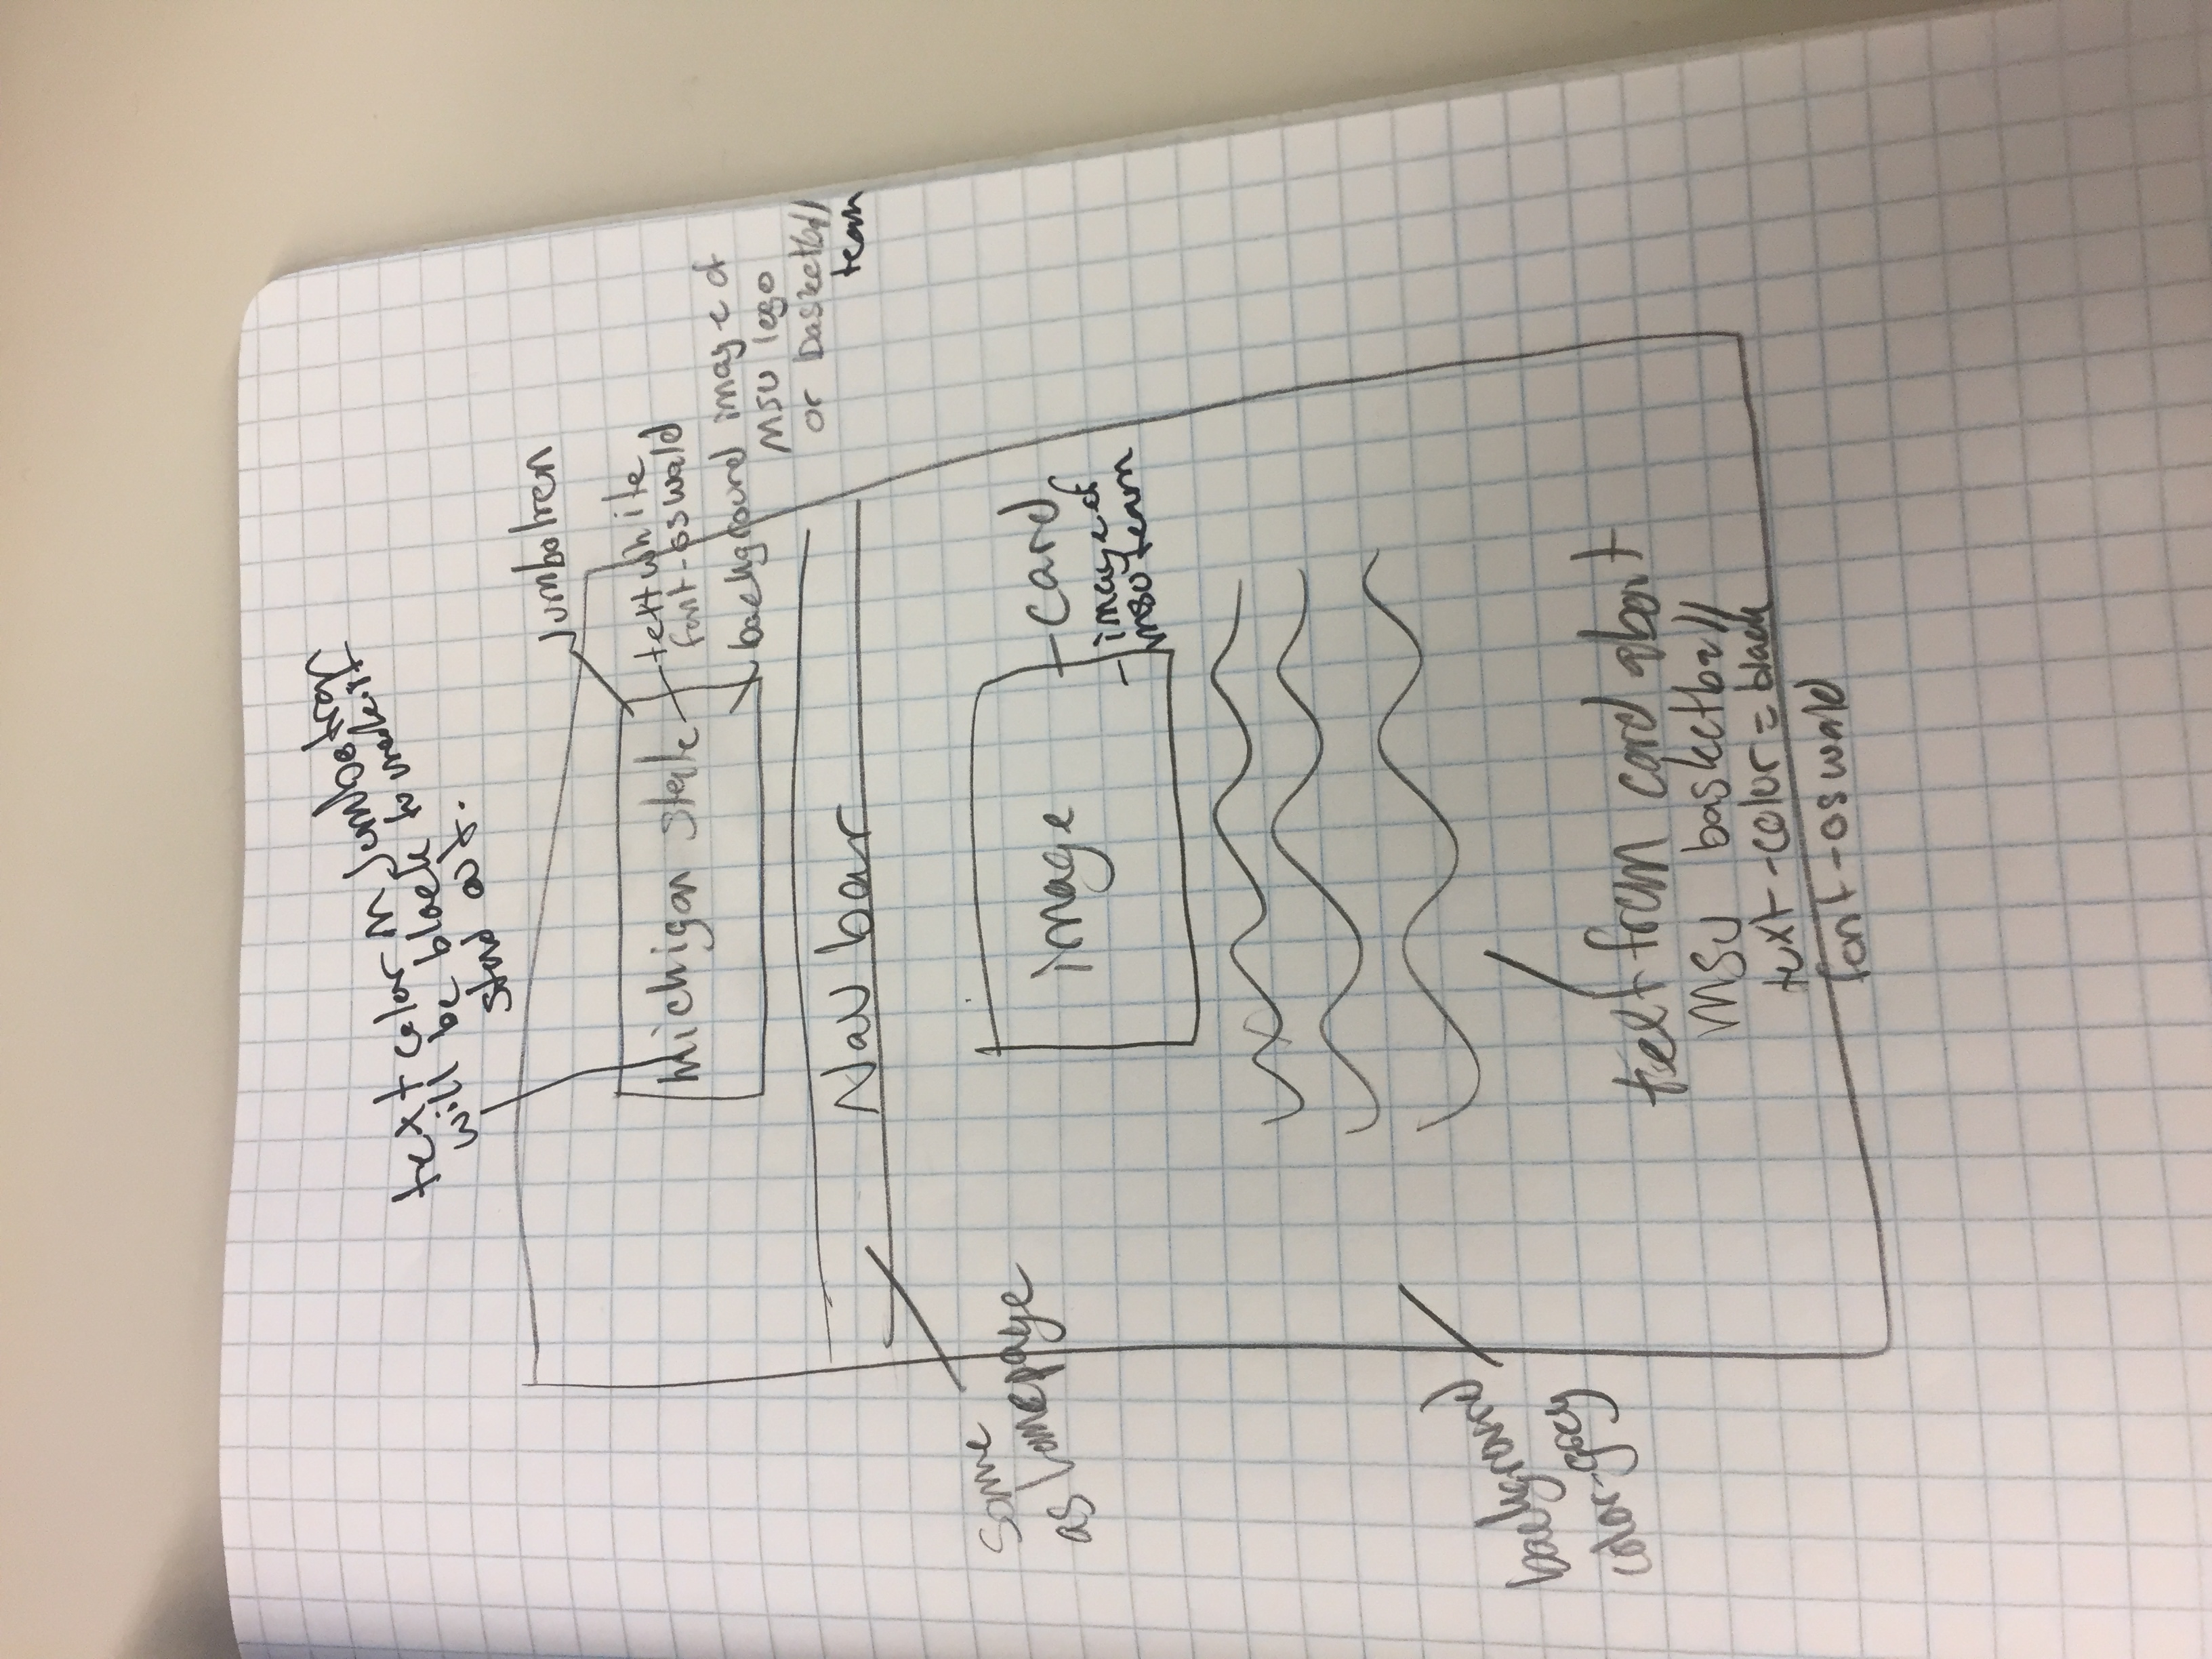 text color in Jumbotron
will be black to make it
stand out.
Jumbotron
michigan state
text white
font-oswald
background image of
MSU logo
or basketball
team
Nav bar
Same
as homepage
image
card
image of
MSU team
background
color-grey
text from card about
MSU basketball
text-color = black
font-oswald